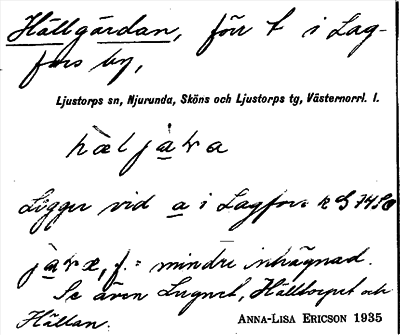 Hällgärdan, förr t i Lag-
fors by,
Ljustorps sn, Njurunda, Sköns och Ljustorps tg, Västernorrl. l.
hæljàva
Ligger vid a i Lagfors
jàvæ, f. = mindre inhägnad.
Se även Lugnet, Hälltorpet och
Hällan.
ANNA-LISA ERICSON 1935